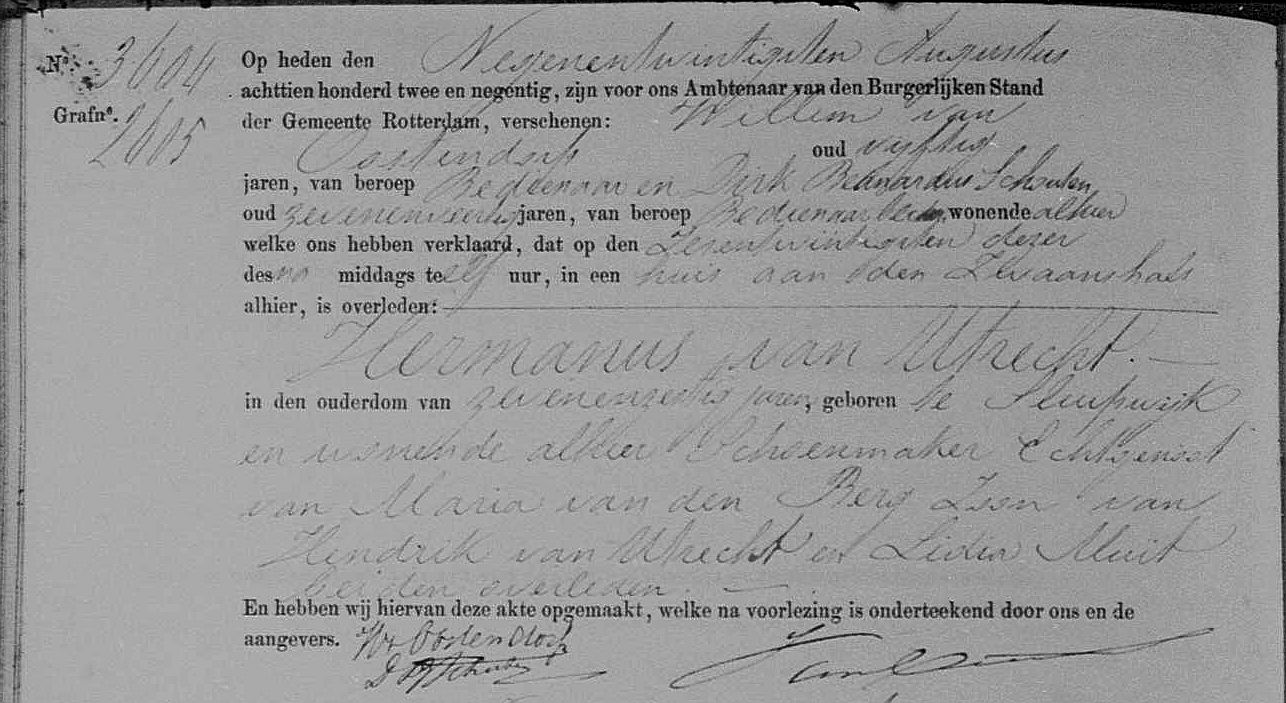 No. 3604 Op heden den Negenentwintigsten Augustus
achttien honderd twee en negentig, zijn voor ons Ambtenaar van den Burgerlijken Stand
Grafno. der Gemeente Rotterdam, verschenen: Willem van
2605 Oostendorp oud vijftig
jaren, van beroep Bedienaar en Dirk Bernardus Schouten
oud zevenenveertig jaren, van beroep Bedienaar beiden wonende alhier
welke ons hebben verklaard, dat op den Zevenentwintigsten dezer
des na middags te elf uur, in een huis aan den Zwaanshals
alhier, is overleden:
Hermanus van Utrecht.
in den ouderdom van zevenenzestig jaren, geboren te Sluipwijk
en wonende alhier Schoenmaker Echtgenoot
van Maria van den Berg Zoon van
Hendrik van Utrecht en Lidia Muit
beiden overleden
En hebben wij hiervan deze akte opgemaakt, welke na voorlezing is onderteekend door ons en de
aangevers. Wv Oostendorp
D B Schouten